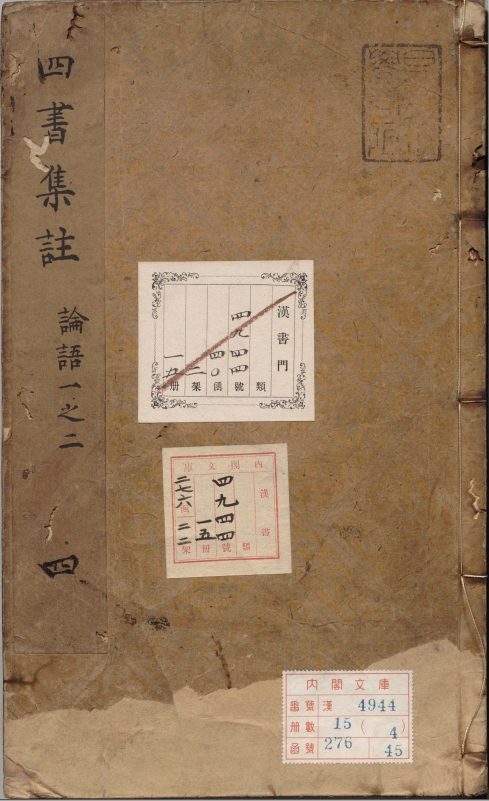 四書集註
論語一之二
四
漢書門
類
四九四四號
四〇函
二架
一五册
内閣文庫
漢書
類
四九四四號
一五冊
二七六函
二二架
内閣文庫
番號 漢 4944
册數 15 ( 4 )
函號 276 45